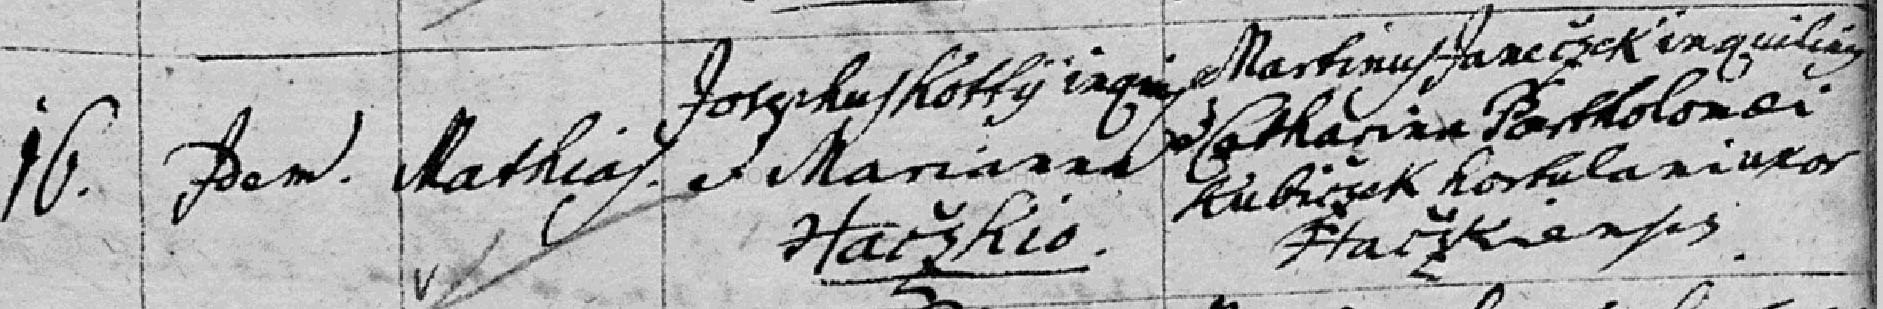 16. Idem. Mathias. Josephus Kotky inquil
et Marianna
Hačzkio.
Martinus Janeczek inquilinus
et Catharina Bartholomæi
Kubiczek hortulani uxor
Hačzkiensis.